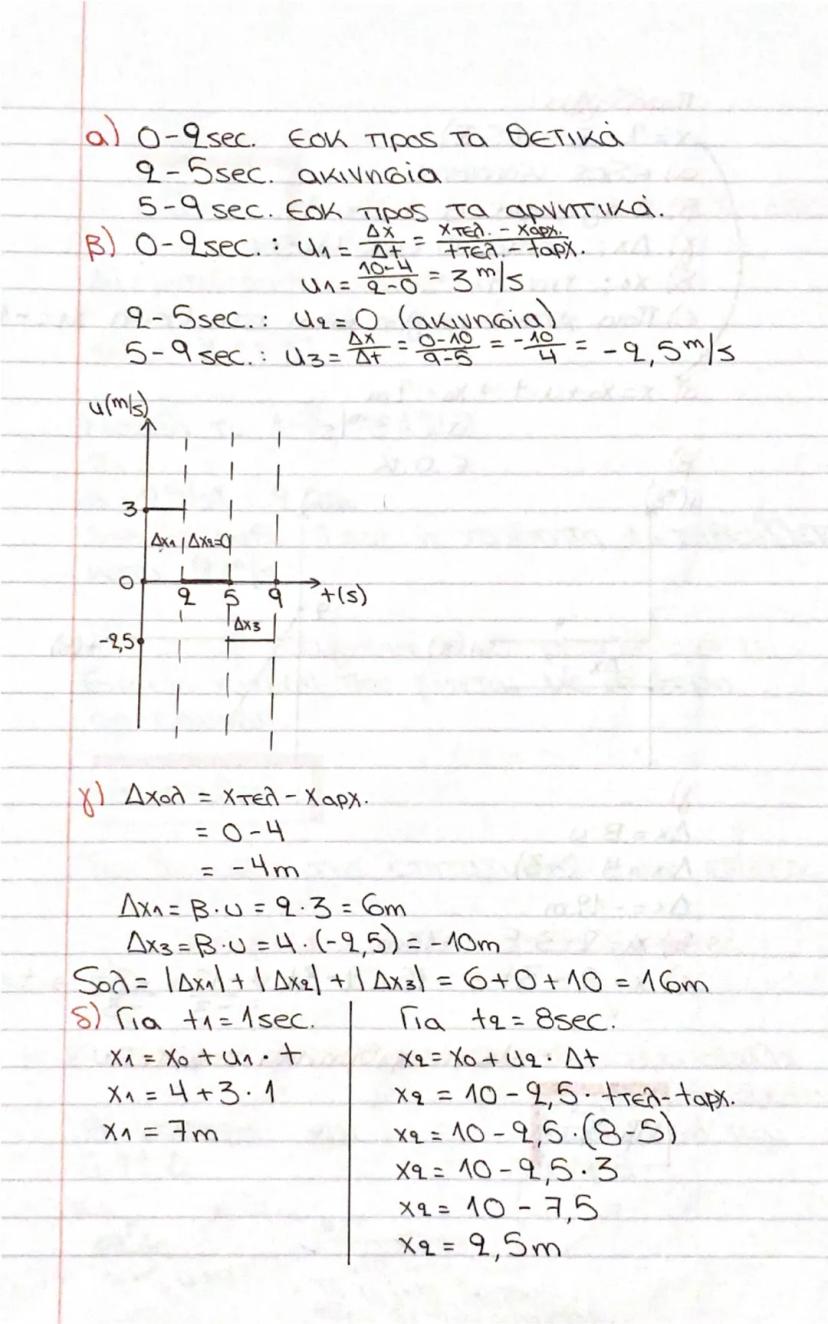 α) 0-2sec. ΕΟΚ προς τα θετικά
2-5sec. ακινησία
5-9sec. ΕΟΚ προς τα αρνητικά.
β) 0-2sec.: υ1 = Δx/Δt = xτελ. - xαρχ./tτελ. - tαρχ.
υ1 = 10-4/2-0 = 3 m/s
2-5sec.: υ2=0 (ακινησία)
5-9sec.: υ3 = Δx/Δt = 0-10/9-5 = -10/4 = -2,5m/s
υ(m/s)
3
Δx1 Δx2=0
0 2 5 9 t(s)
Δx3
-2,5
γ) Δxολ = xτελ - xαρχ.
= 0-4
= -4m
Δx1 = β·υ = 2·3 = 6m
Δx3 = β·υ = 4·(-2,5) = -10m
Sολ = |Δx1| + |Δx2| + |Δx3| = 6+0+10 = 16m
δ) Για t1 = 1sec.
x1 = x0 + υ1·t
x1 = 4+3·1
x1 = 7m
Για t2 = 8sec.
x2 = x0 + υ2·Δt
x2 = 10-2,5·tτελ-tαρχ.
x2 = 10-2,5·(8-5)
x2 = 10-2,5·3
x2 = 10-7,5
x2 = 2,5m